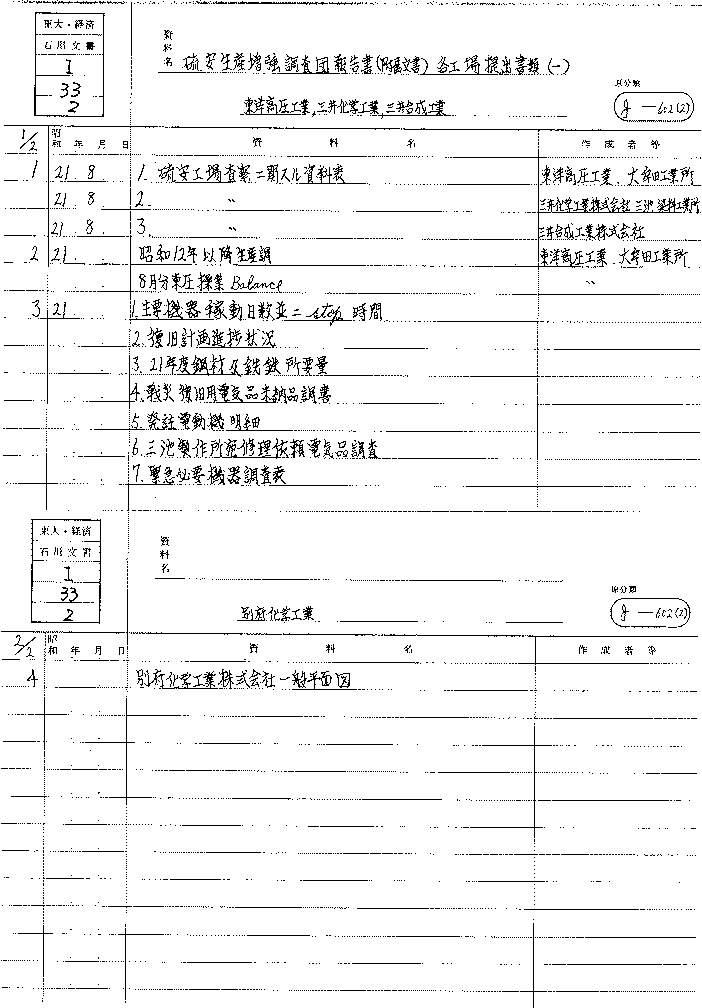 東大・経済
石川文書
I
33
2
資料名 硫安生産増強調査団報告書(附属文書) 各工場提出書類(一)
東洋高圧工業,三井化学工業,三井合成工業
原分類
g—602(2)
1/2 昭和 年 月 日 資料名 作成者等
1 21. 8. 1. 硫安工場査察ニ関スル資料表 東洋高圧工業 大牟田工業所
21. 8. 2. 〃 三井化学工業株式会社 三池染料工業所
21. 8. 3. 〃 三井合成工業株式会社
2 21. 昭和12年以降生産調 東洋高圧工業 大牟田工業所
8月分東圧操業 Balance 〃
3 21. 1. 主要機器稼動日数並ニ stop 時間
2. 復旧計画進捗状況
3. 21年度鋼材及銑鉄所要量
4. 戦災復旧用電気品未納品調書
5. 発註電動機明細
6. 三池製作所宛修理依頼電気品調査
7. 緊急必要機器調査表
東大・経済
石川文書
I
33
2
資料名
別府化学工業
原分類
g—602(2)
2/2 昭和 年 月 日 資料名 作成者等
4 別府化学工業株式会社一般平面図